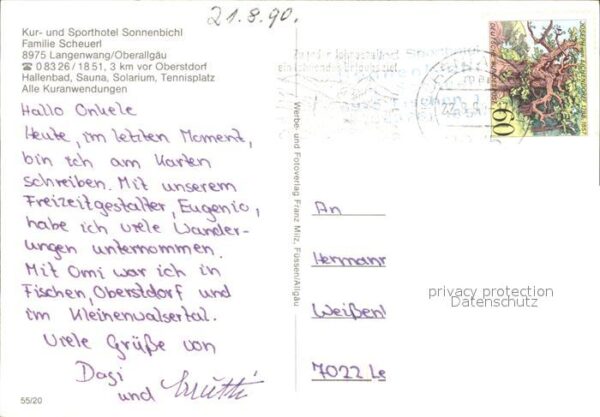 21.8.90.
Kur- und Sporthotel Sonnenbichl
Familie Scheuerl
8975 Langenwang/Oberallgäu
☎ 0 83 26 / 18 51, 3 km vor Oberstdorf
Hallenbad, Sauna, Solarium, Tennisplatz
Alle Kuranwendungen
Hallo Onkele
Heute, im letzten Moment,
bin ich am Karten
schreiben. Mit unserem
Freizeitgestalter, Eugenio,
habe ich viele Wander-
ungen unternommen.
Mit Omi war ich in
Fischen, Oberstdorf und
im Kleinenwalsertal.
Viele Grüße von
Dagi
und Mutti
55/20
Werbe- und Fotoverlag Franz Milz, Füssen/Allgäu
60
DEUTSCHE BUNDESPOST
An
Hermann
Weißen
7022 Le
privacy protection
Datenschutz